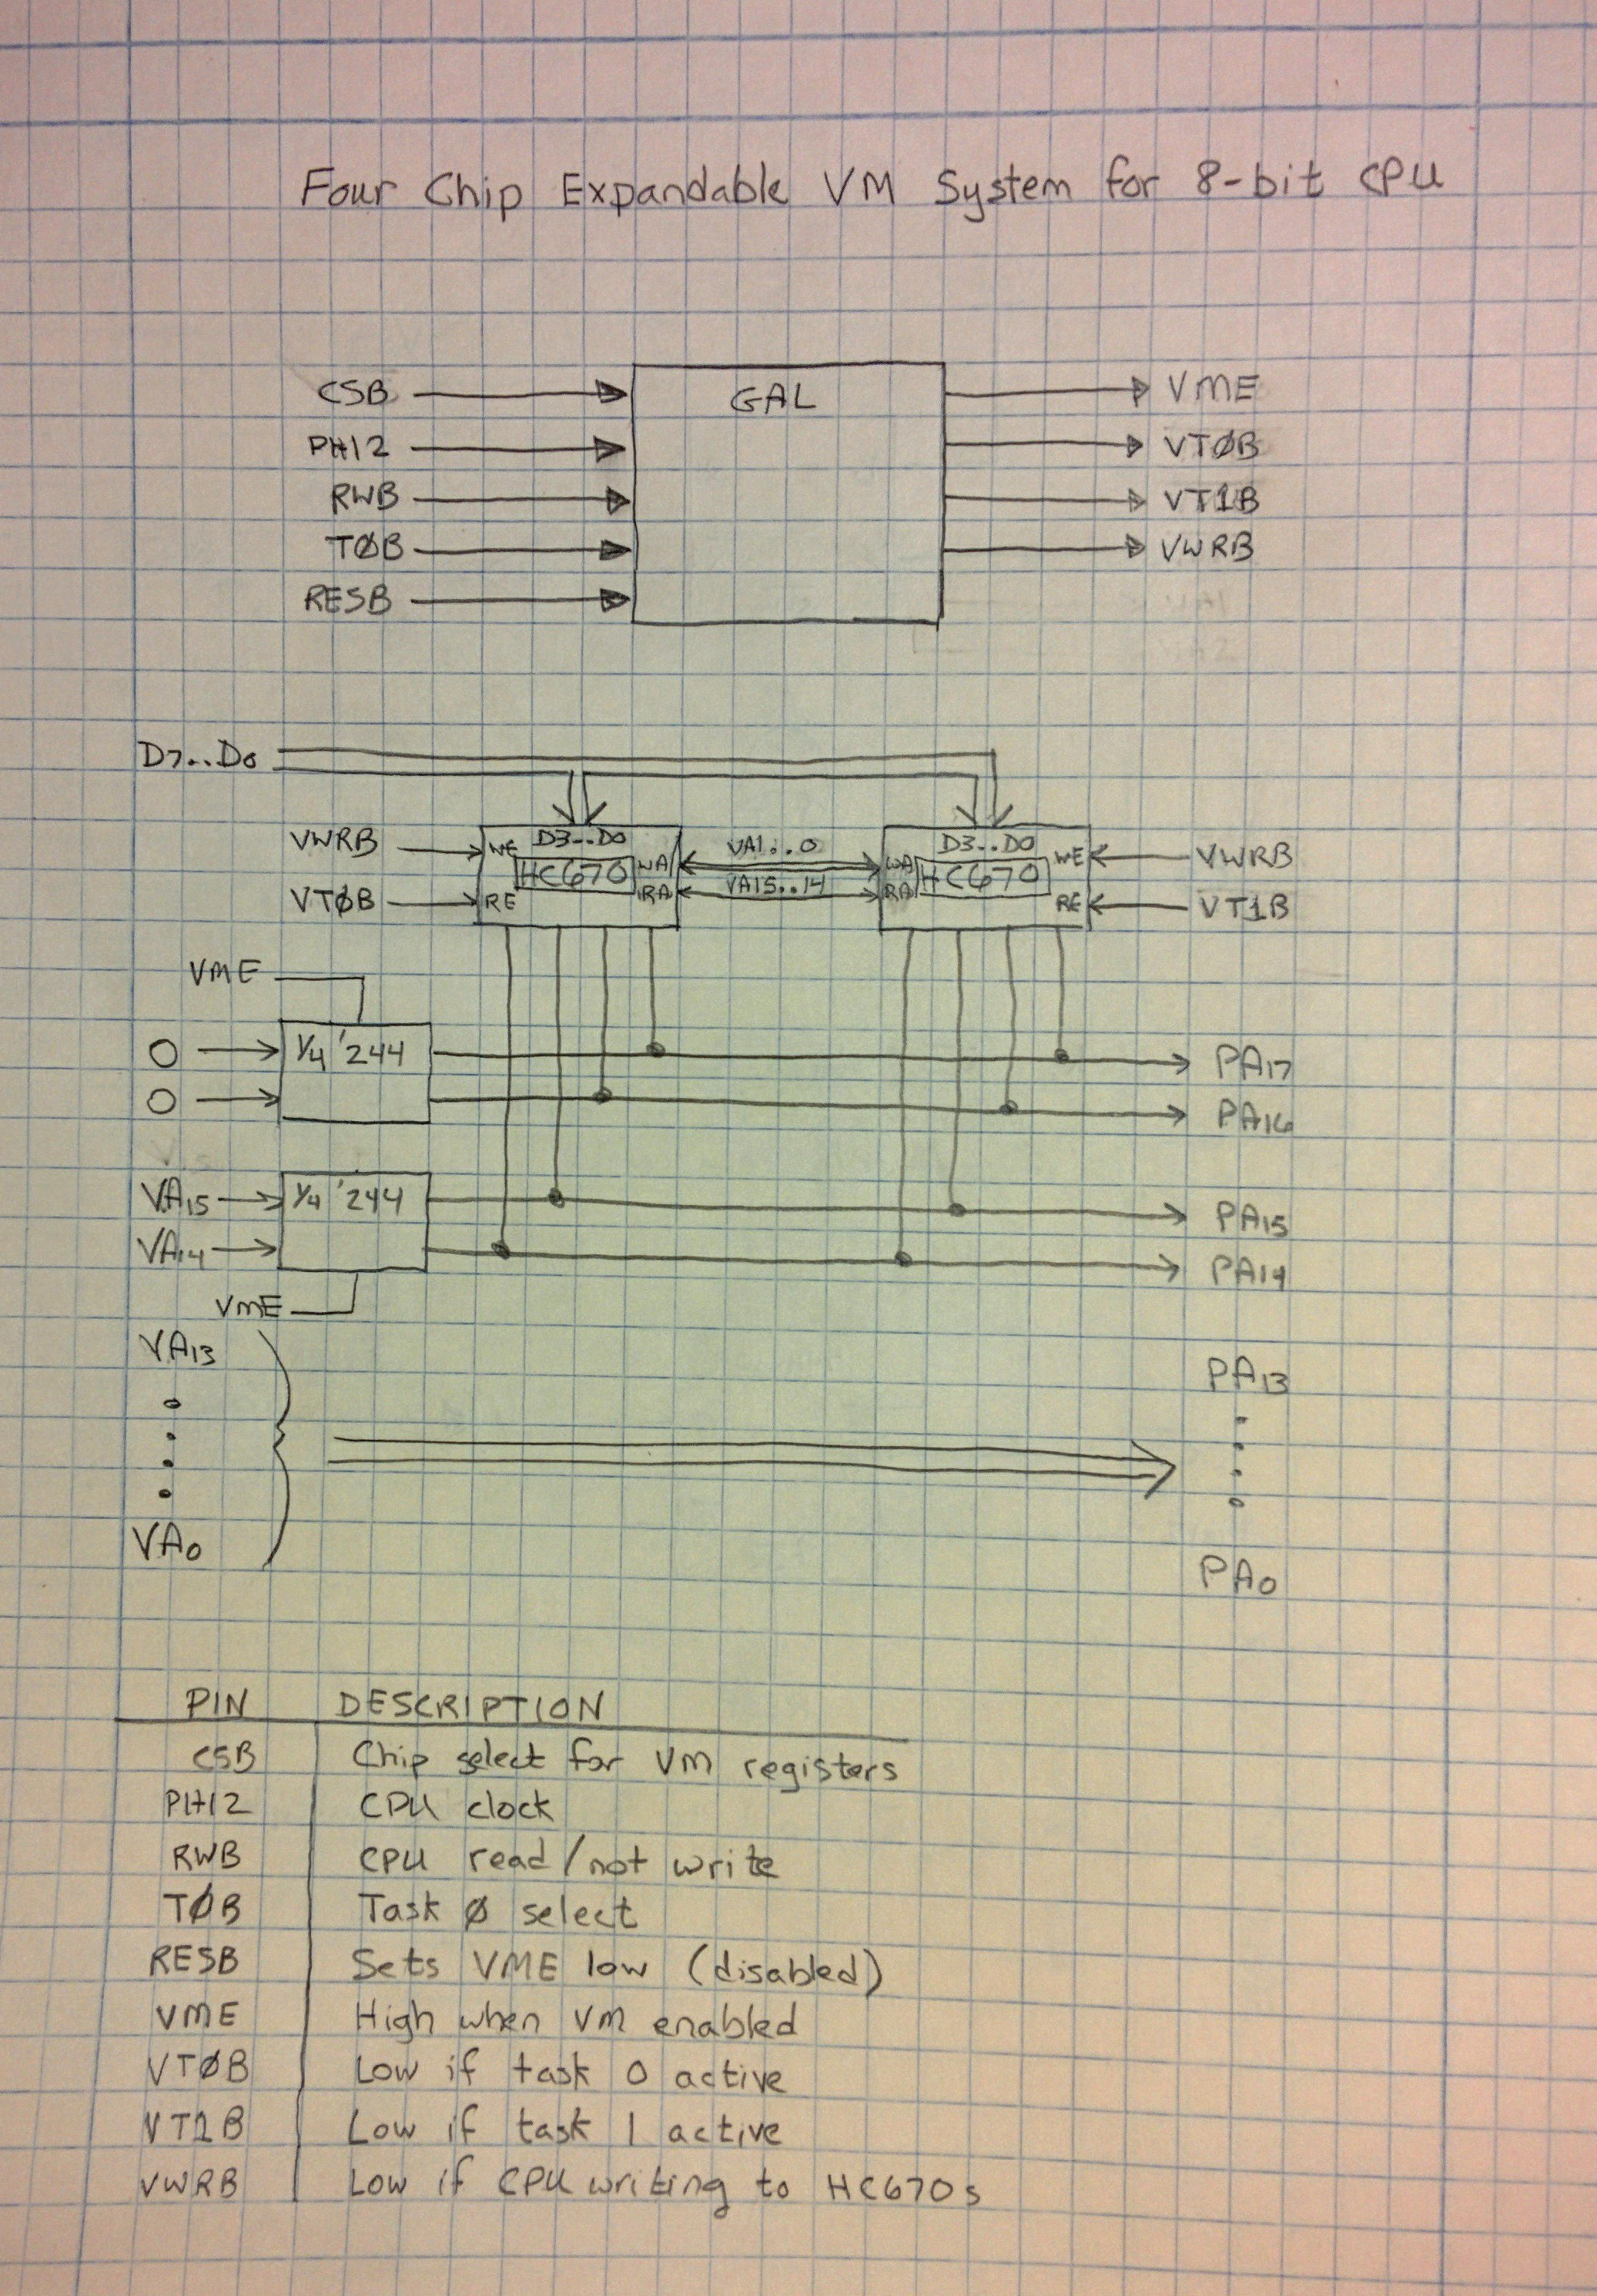 Four Chip Expandable VM System for 8-bit CPU
CSB GAL VME
PHI2 VTØB
RWB VT1B
TØB VWRB
RESB
D7..D0
VWRB WE D3..D0 WA VA1..0 WA D3..D0 WE VWRB
HC670 HC670
VTØB RE RA VA15..14 RA RE VT1B
VME
O 1/4 '244 PA17
O PA16
VA15 1/4 '244 PA15
VA14 PA14
VME
VA13 PA13
VA0 PA0
PIN DESCRIPTION
CSB Chip select for VM registers
PHI2 CPU clock
RWB CPU read/not write
TØB Task Ø select
RESB Sets VME low (disabled)
VME High when VM enabled
VTØB Low if task 0 active
VT1B Low if task 1 active
VWRB Low if CPU writing to HC670s